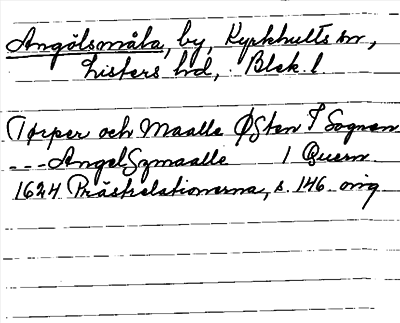 Angölsmåla, by, Kyrkhults sn,
Listers hd, Blek. l.
Tørper och Maalle ØSten I Sognen
---AngelSzmaalle 1 Quern
1624 Prästrelationerna, s. 146. orig